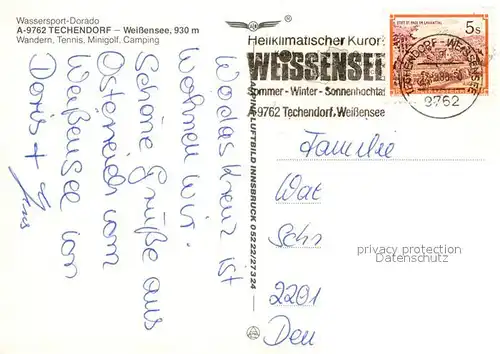 Wassersport-Dorado
A-9762 TECHENDORF – Weißensee, 930 m
Wandern, Tennis, Minigolf, Camping
Wo das Kreuz ist
wohnen wir.
Schöne Grüße aus
Österreich vom
Weißensee von
Doris + Jens
ALPINE LUFTBILD INNSBRUCK 05222/27324
Heilklimatischer Kurort
WEISSENSEE
Sommer - Winter - Sonnenhochtal
A-9762 Techendorf, Weißensee
5s
TECHENDORF - WEISSENSEE
9762
Familie
Wat
Schr
2201
Deu
privacy protection
Datenschutz